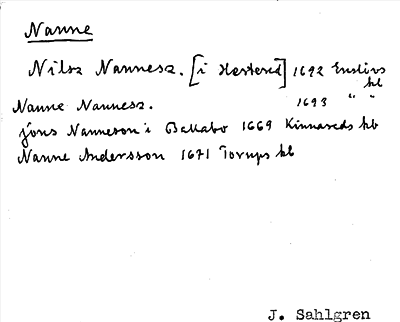 Nanne
Nilsz Nannesz. [i Hestered] 1692 Enslövs kb
Nanne Nannesz. 1693 " "
Jöns Nanneson i Ballabo 1669 Kinnareds kb
Nanne Andersson 1671 Torups kb
J. Sahlgren